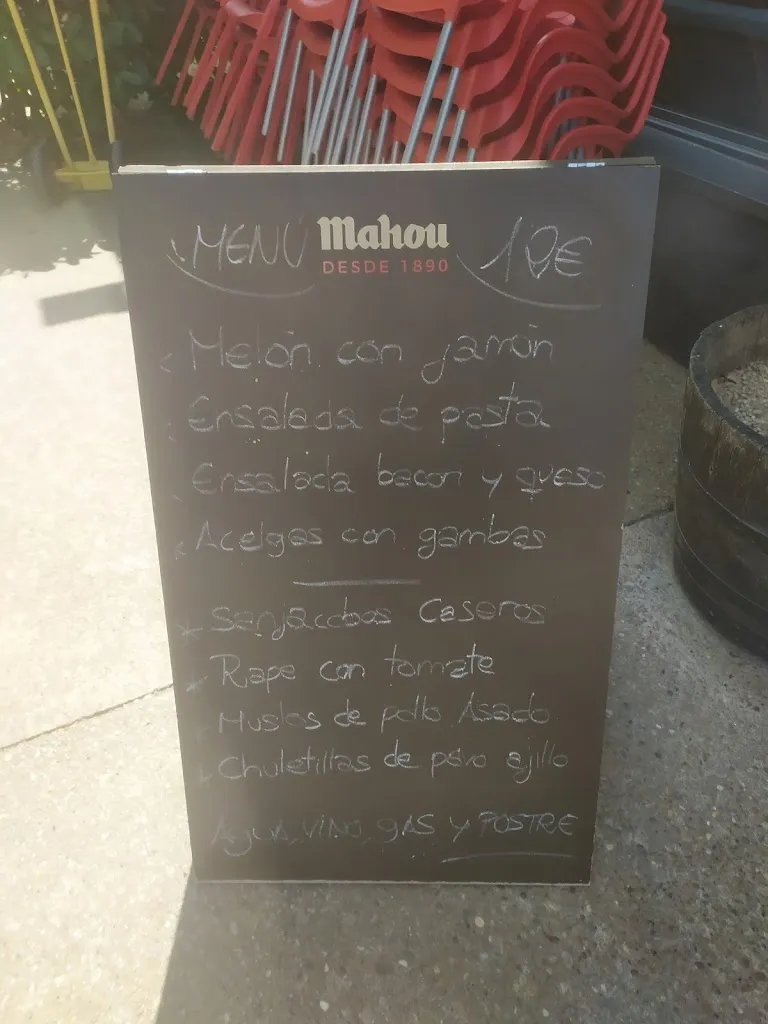 MENÚ Mahou 10€
DESDE 1890
Melón con jamón
Ensalada de pasta
Ensalada bacon y queso
Acelgas con gambas
Sanjacobos Caseros
Rape con tomate
Muslos de pollo Asado
Chuletillas de pavo ajillo
Agua, VINO, gAS y POSTRE